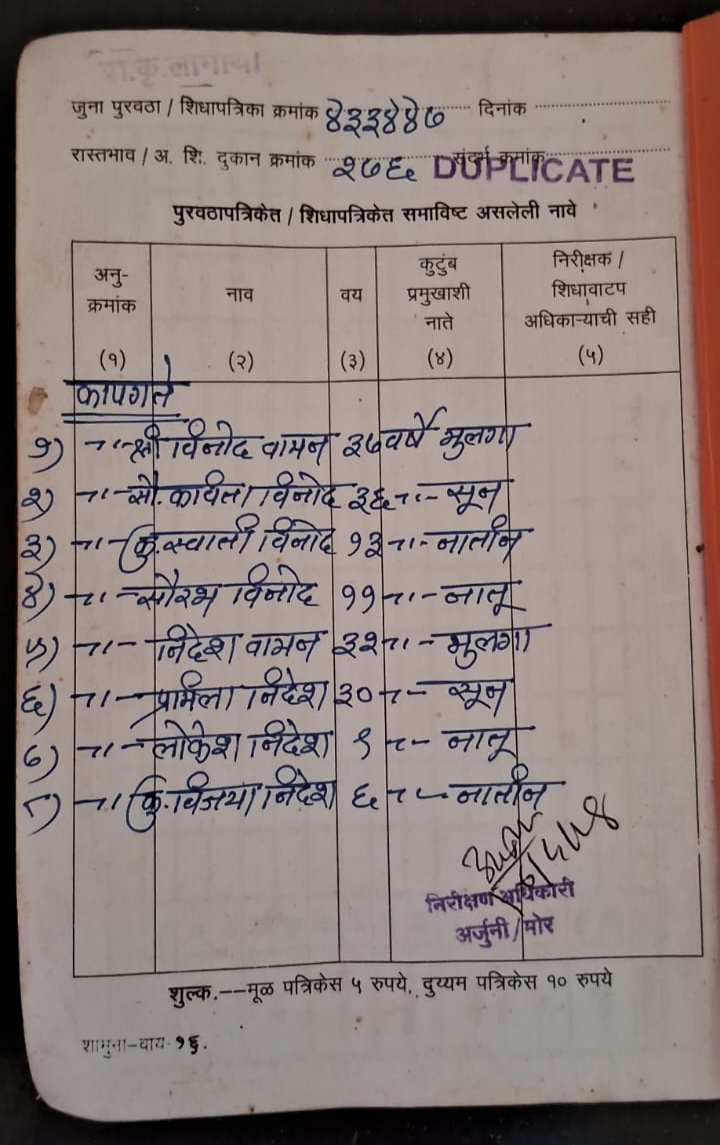 जुना पुरवठा / शिधापत्रिका क्रमांक ४३३४४७ दिनांक
रास्तभाव / अ. शि. दुकान क्रमांक २७६ संदर्भ क्रमांक
DUPLICATE
पुरवठापत्रिकेत / शिधापत्रिकेत समाविष्ट असलेली नावे
अनु-क्रमांक नाव वय कुटुंब प्रमुखाशी नाते निरीक्षक / शिधावाटप अधिकाऱ्याची सही
(१) (२) (३) (४) (५)
कापगते
१) -"- श्री विनोद वामन ३७ वर्षे मुलगा
२) -"- सौ. कविता विनोद ३६ -"- सून
३) -"- कु. स्वाती विनोद १३ -"- नातीन
४) -"- सौरभ विनोद ११ -"- नातू
५) -"- निदेश वामन ३२ -"- मुलगा
६) -"- प्रमिला निदेश ३० -"- सून
७) -"- लोकेश निदेश ९ -"- नातू
८) -"- कु. विजया निदेश ६ -"- नातीन
निरीक्षण अधिकारी
अर्जुनी / मोर
शुल्क.--मूळ पत्रिकेस ५ रुपये, दुय्यम पत्रिकेस १० रुपये
शामुना-वाय-१६.